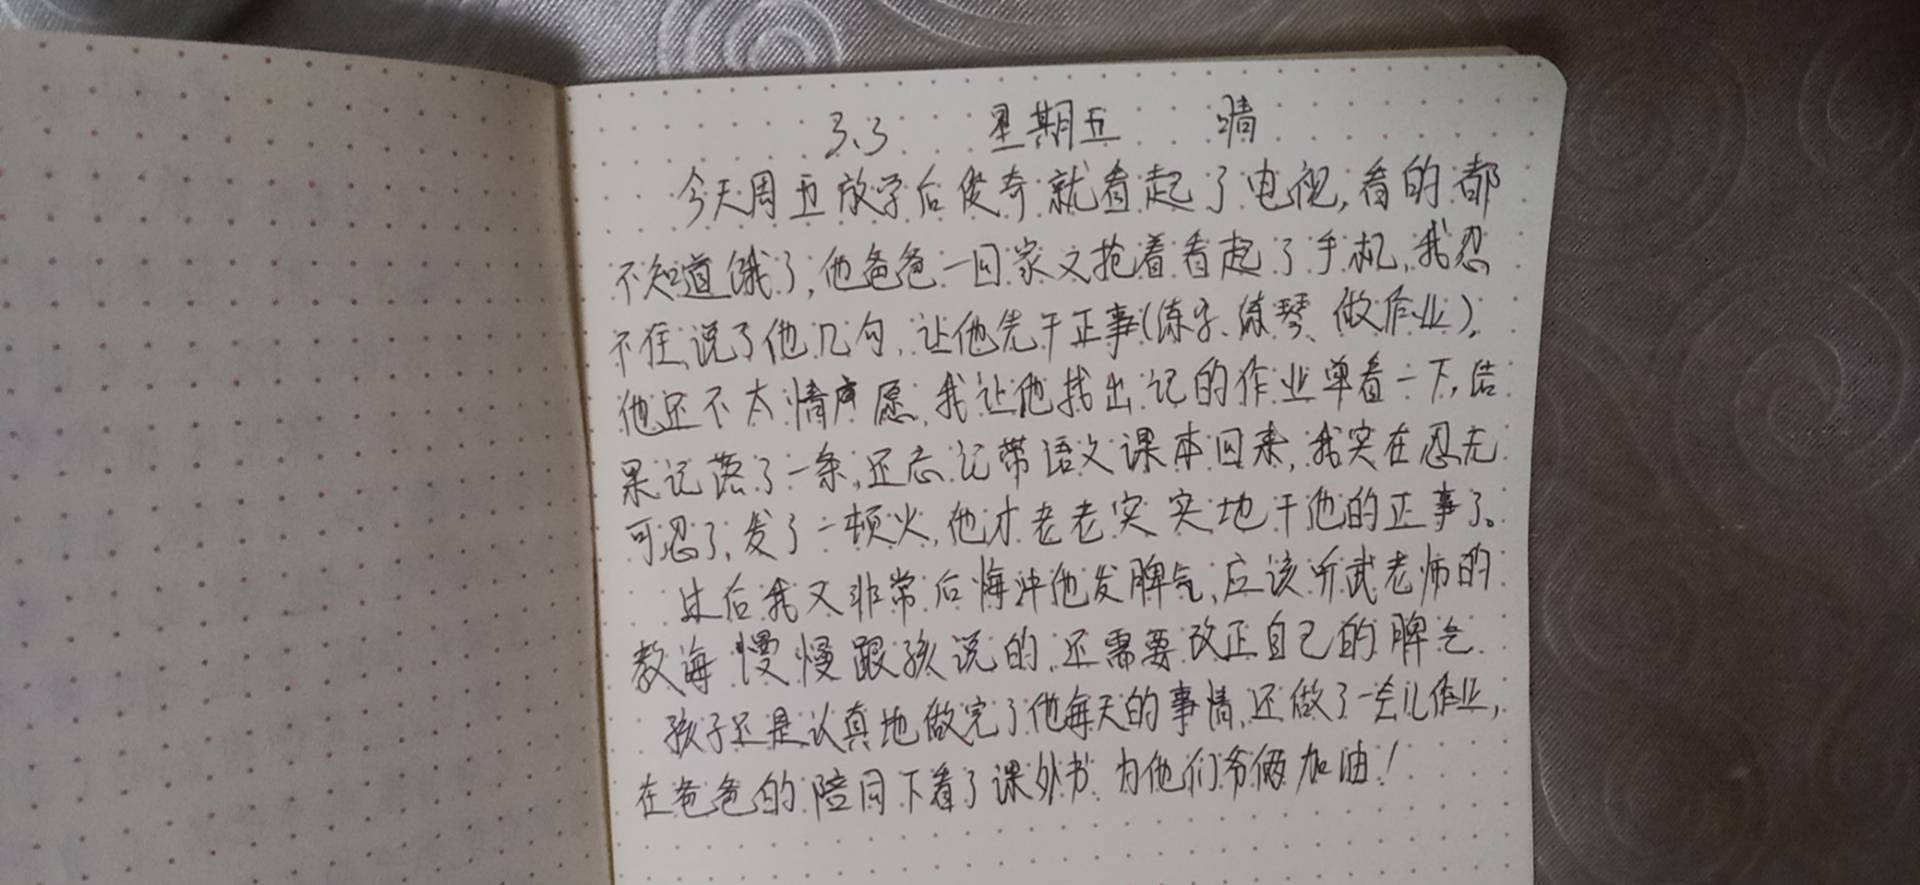 3.3 星期五 晴
今天周五放学后俊奇就看起了电视,看的都
不知道饿了,他爸爸一回家又抢着看起了手机,我忍
不住说了他几句,让他先干正事(练字、练琴、做作业),
他还不太情愿,我让他找出记的作业单看一下,结
果记落了一条,还忘记带语文课本回来,我实在忍无
可忍了,发了一顿火,他才老老实实地干他的正事了。
过后我又非常后悔冲他发脾气,应该听武老师的
教海慢慢跟孩说的,还需要改正自己的脾气.
孩子还是认真地做完了他每天的事情,还做了一会儿作业,
在爸爸的陪同下看了课外书.为他们爷俩加油!